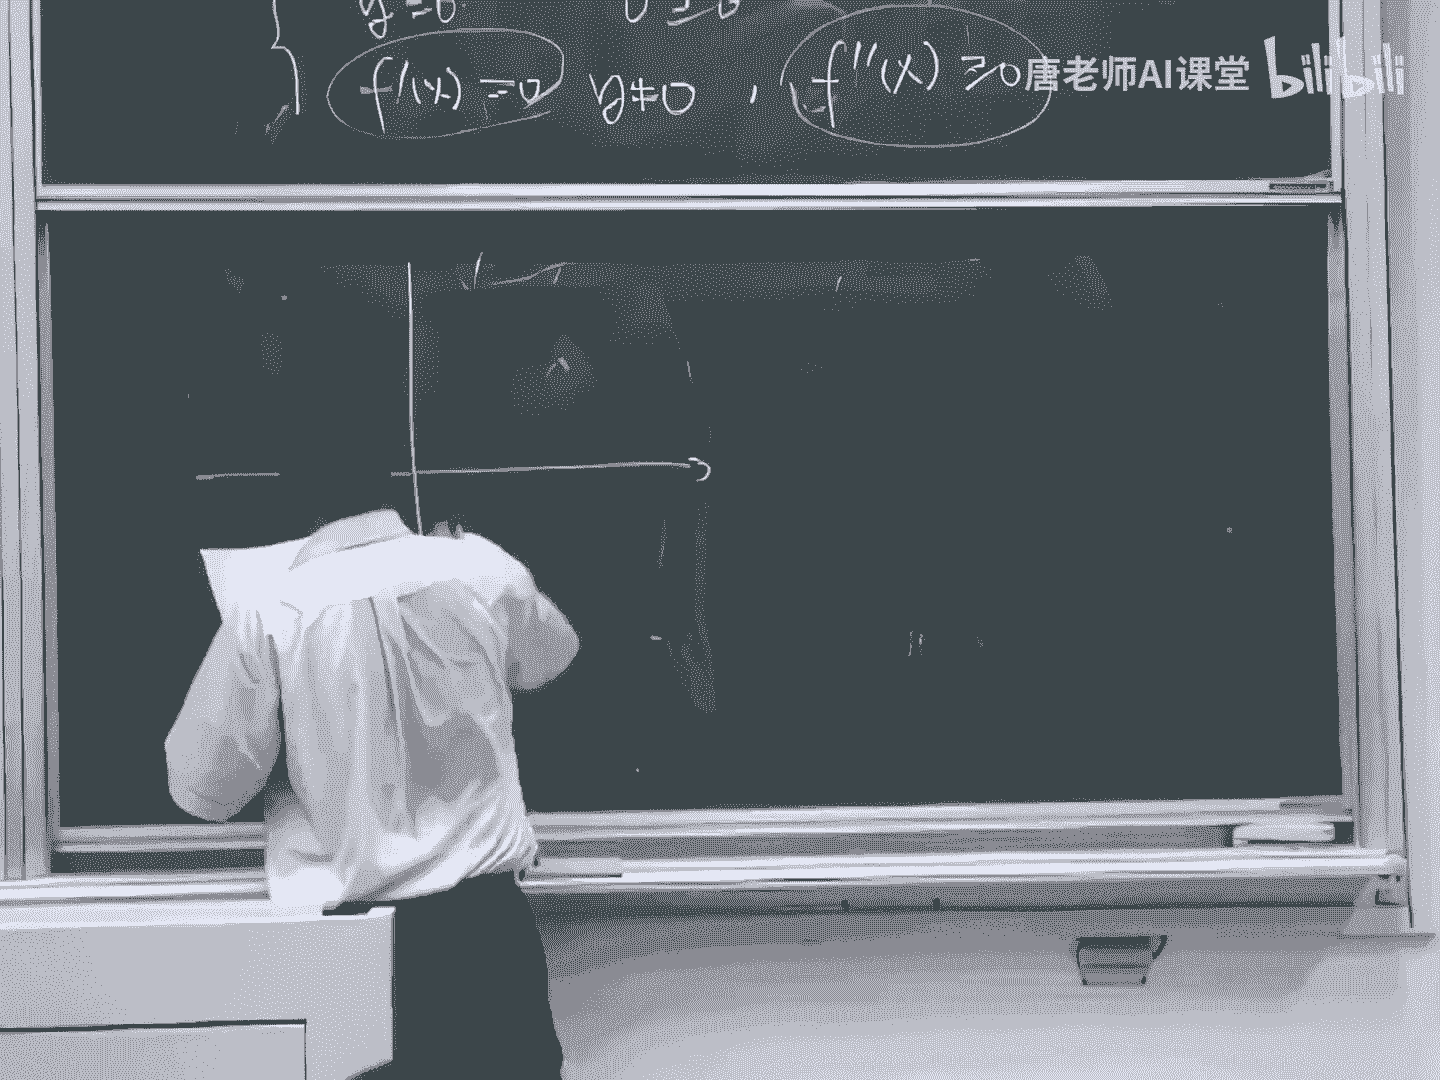 f'(x) = 0 y≠0 , f''(x) ≥0
唐老师AI课堂 bilibili